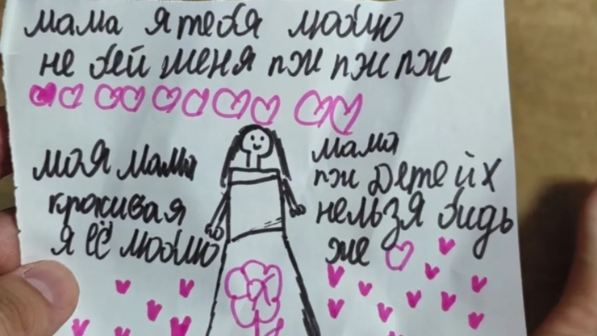 мама я тебя люблю
не бей меня пж пж пж
моя мама
красивая
я её люблю
мама
пж детейх
нельзя бидь
же